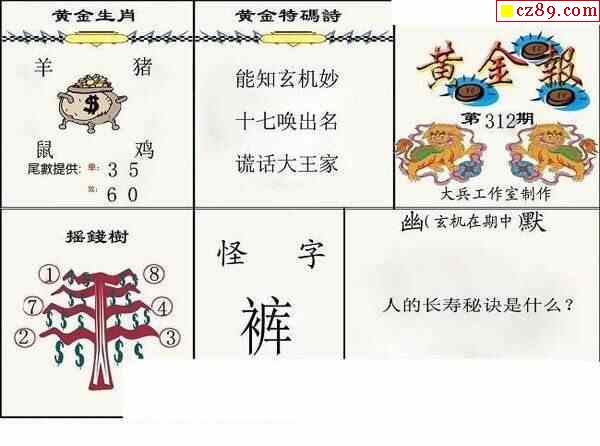 cz89.com
黄金生肖
羊 猪
$
鼠 鸡
尾數提供: 单: 3 5
双: 6 0
黄金特碼詩
能知玄机妙
十七唤出名
谎话大王家
黄金報
第312期
大兵工作室制作
摇錢樹
① ⑧
⑦ ④
② ③
$ $ $ $ $ $ $ $ $ $ $ $
怪 字
裤
幽(玄机在期中)默
人的长寿秘诀是什么?